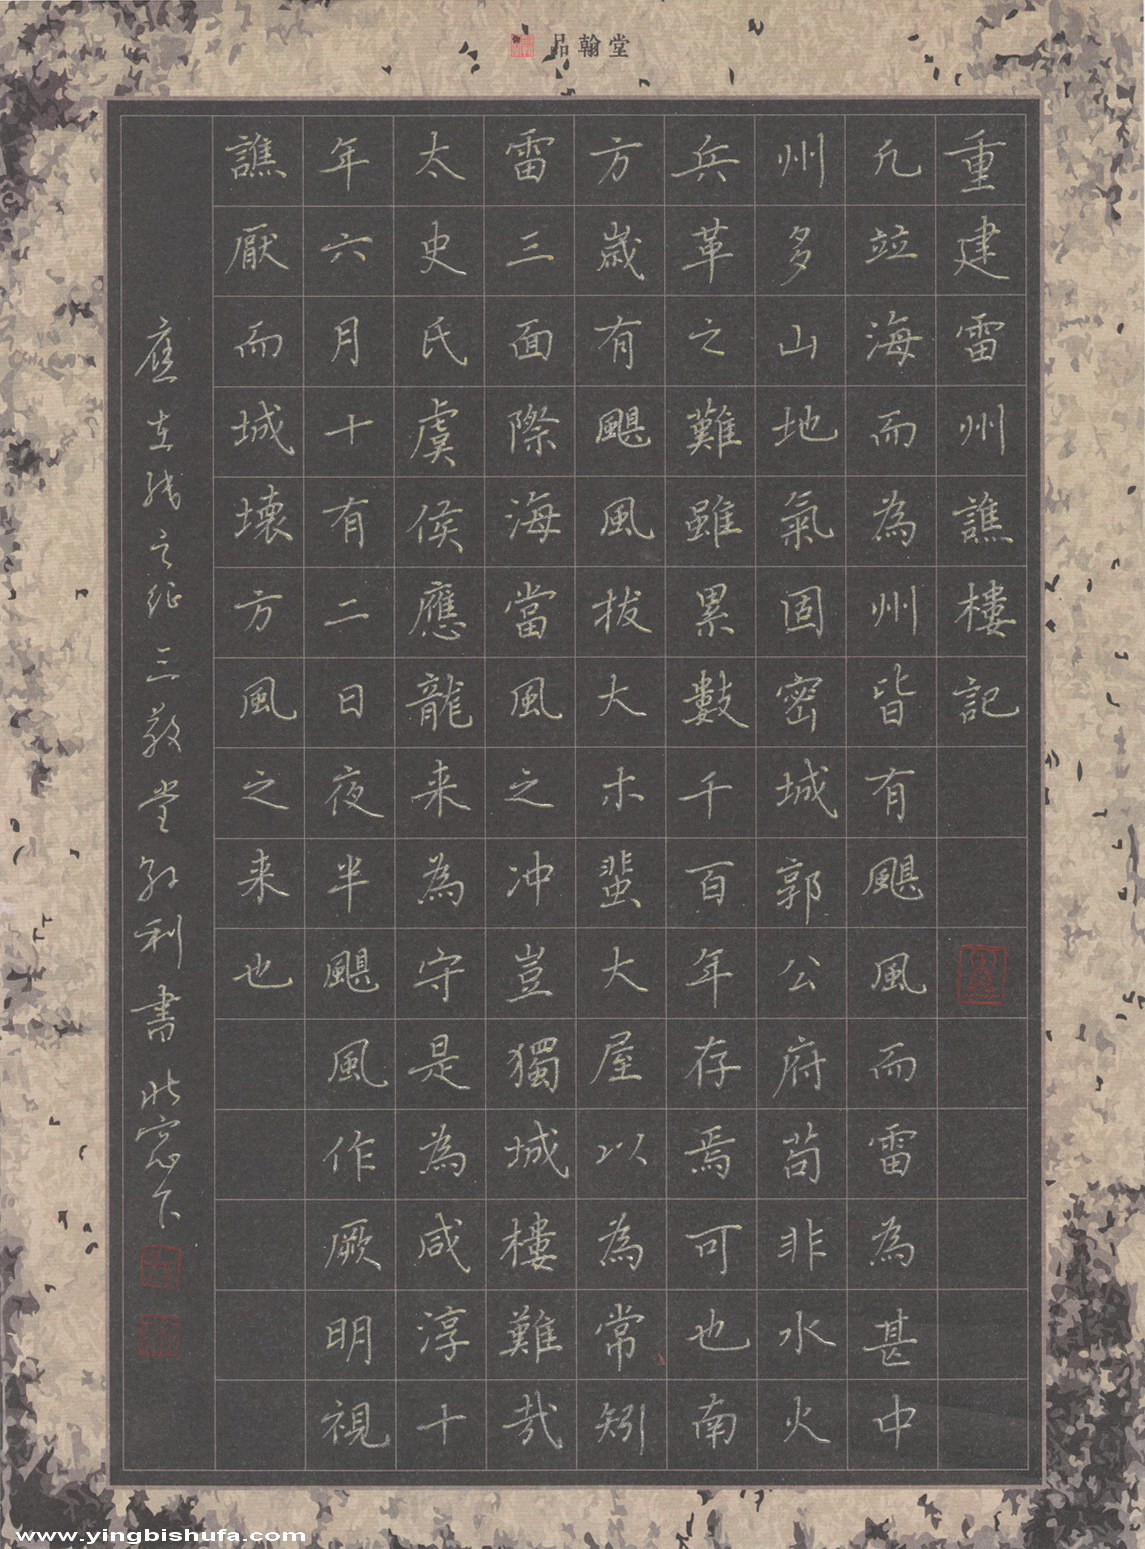 品翰堂
重建雷州譙樓記
凡竝海而為州皆有颶風而雷為甚中
州多山地氣固密城郭公府苟非水火
兵革之難雖累數千百年存焉可也南
方歲有颶風拔大木蜚大屋以為常矧
雷三面際海當風之沖豈獨城樓難哉
太史氏虞侯應龍来為守是為咸淳十
年六月十有二日夜半颶風作厥明視
譙厭而城壞方風之来也
應在線之約三教堂利書於窓下
www.yingbishufa.com